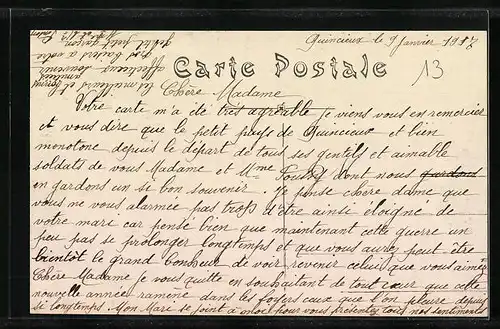 Quincieux le 9 Janvier 1917
13
Carte Postale
Chère Madame
Votre carte m'a été très agréable je viens vous en remercier
et vous dire que le petit pays de Quincieux et bien
monotone depuis le départ de tous ses gentils et aimable
soldats de vous Madame et Mme dont nous gardons
en gardons un si bon souvenir. Je pense chère dame que
vous ne vous alarmée pas trop d'être ainsi éloigné de
votre mari car pensé bien que maintenant cette guerre un
peu pas se prolonger longtemps et que vous aurez peut être
bientôt le grand bonheur de voir revenir celui que vous aimée
Chère Madame je vous quitte en souhaitant de tout cœur que cette
nouvelle année ramène dans les foyers ceux que l'on pleure depuis
si longtemps Mon Mari se joint à moi pour vous présentez tous nos sentiments
les meilleurs et
affectueux souvenir
gros baisers à votre
gentil petit garçon